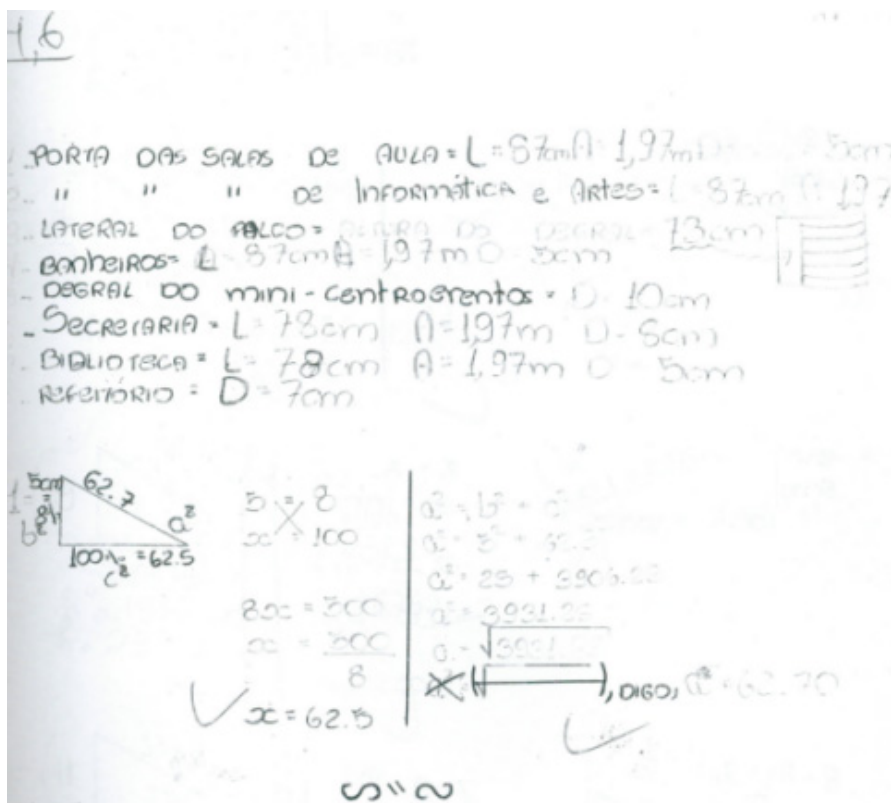 1,6
PORTA DAS SALAS DE AULA = L = 87cm A = 1,97m 5cm
" " " DE INFORMÁTICA e ARTES = L = 87cm A = 1,97
LATERAL DO PALCO = ALTURA DO DEGRAL = 73cm
BANHEIROS = L = 87cm A = 1,97m D = 5cm
- DEGRAL DO mini-CENTROEVENTOS = D = 10cm
- SECRETARIA = L = 78cm A = 1,97m D = 5cm
BIBLIOTECA = L = 78cm A = 1,97m D = 5cm
REFEITÓRIO = D = 7cm
5cm 62.7
8% a²
b²
100% = 62.5
c²
5 = 8
x 100
8x = 500
x = 500
8
x = 62.5
a² = b² + c²
a² = 5² + 62.5²
a² = 25 + 3906.25
a² = 3931.25
a = √3931.25
), DIGO, a² = 62.70